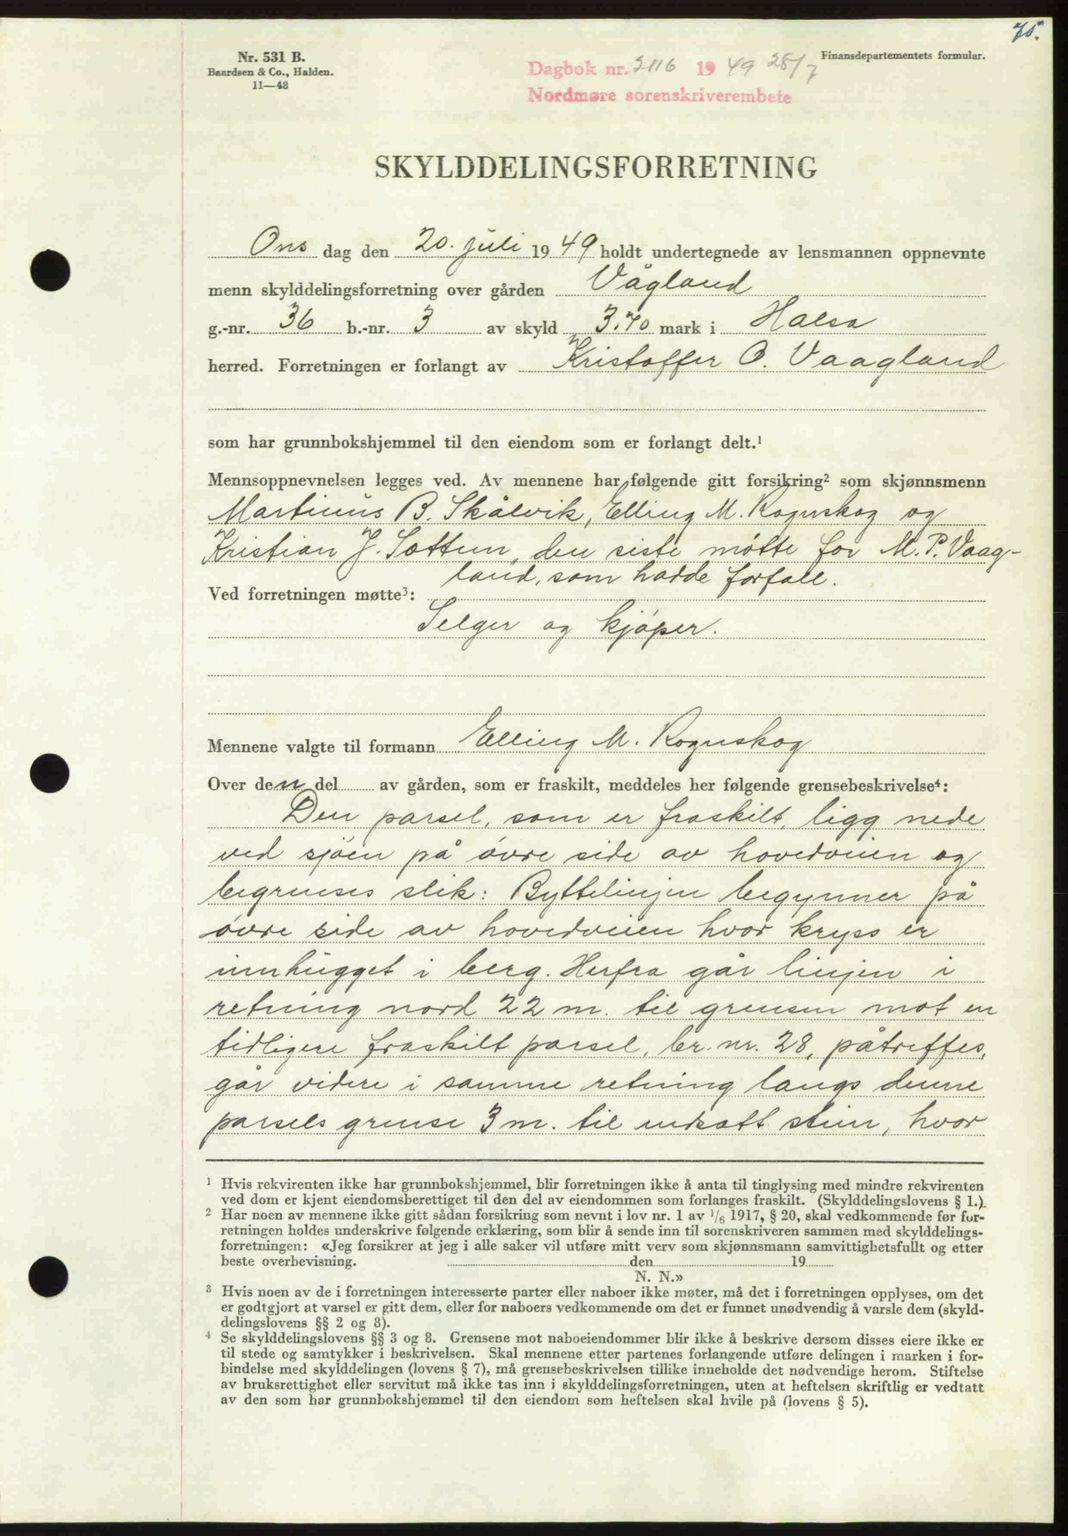 75.
Nr. 531 B.
Baardsen & Co., Halden.
11—48
Dagbok nr. 2116 1949 25/7
Nordmøre sorenskriverembete
Finansdepartementets formular.
SKYLDDELINGSFORRETNING
Ons dag den 20. juli 1949 holdt undertegnede av lensmannen oppnevnte
menn skylddelingsforretning over gården Vågland
g.-nr. 36 b.-nr. 3 av skyld 3.70 mark i Halsa
herred. Forretningen er forlangt av Kristoffer O. Vaagland
som har grunnbokshjemmel til den eiendom som er forlangt delt.¹
Mennsoppnevnelsen legges ved. Av mennene har følgende gitt forsikring² som skjønnsmenn
Martinus B. Skålvik, Elling M. Rognskog og
Kristian J. Sættem, den siste møtte for M. P. Vaag-
land, som hadde forfall.
Ved forretningen møtte³:
Selger og kjøper.
Mennene valgte til formann Elling M. Rognskog
Over den del av gården, som er fraskilt, meddeles her følgende grensebeskrivelse⁴:
Den parsel, som er fraskilt, ligg nede
ved sjøen på øvre side av hovedveien og
begrenses slik: Byttelinjen begynner på
øvre side av hovedveien hvor kryss er
innhugget i berg. Herfra går linjen i
retning nord 22 m. til grensen mot en
tidligere fraskilt parsel, br. nr. 28, påtreffes,
går videre i samme retning langs denne
parsels grense 3 m. til nedsatt stein, hvor
¹ Hvis rekvirenten ikke har grunnbokshjemmel, blir forretningen ikke å anta til tinglysing med mindre rekvirenten
ved dom er kjent eiendomsberettiget til den del av eiendommen som forlanges fraskilt. (Skylddelingslovens § 1.)
² Har noen av mennene ikke gitt sådan forsikring som nevnt i lov nr. 1 av 1/6 1917, § 20, skal vedkommende før for-
retningen holdes underskrive følgende erklæring, som blir å sende inn til sorenskriveren sammen med skylddelings-
forretningen: «Jeg forsikrer at jeg i alle saker vil utføre mitt verv som skjønnsmann samvittighetsfullt og etter
beste overbevisning. den 19
N. N.»
³ Hvis noen av de i forretningen interesserte parter eller naboer ikke møter, må det i forretningen opplyses, om det
er godtgjort at varsel er gitt dem, eller for naboers vedkommende om det er funnet unødvendig å varsle dem (skyld-
delingslovens §§ 2 og 3).
⁴ Se skylddelingslovens §§ 3 og 8. Grensene mot naboeiendommer blir ikke å beskrive dersom disses eiere ikke er
til stede og samtykker i beskrivelsen. Skal mennene etter partenes forlangende utføre delingen i marken i for-
bindelse med skylddelingen (lovens § 7), må grensebeskrivelsen tillike inneholde det nødvendige herom. Stiftelse
av bruksrettighet eller servitut må ikke tas inn i skylddelingsforretningen, uten at heftelsen skriftlig er vedtatt
av den som har grunnbokshjemmel til den eiendom som heftelsen skal hvile på (lovens § 5).